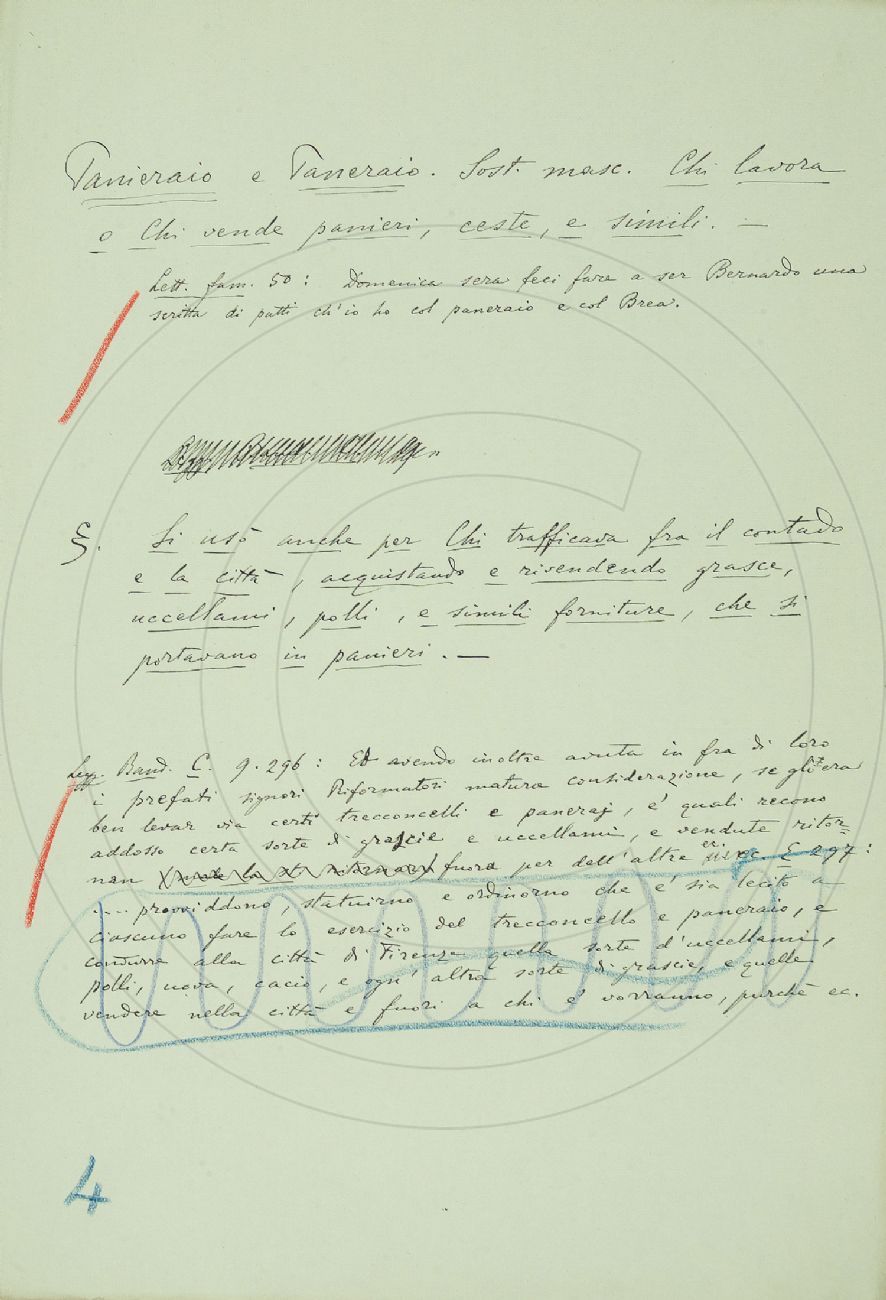 Panieraio e Paneraio. Sost. masc. Chi lavora
o Chi vende panieri, ceste, e simili. —
Lett. fam. 50 : Domenica sera feci fare a ser Bernardo una
scritta di patti ch'io ho col paneraio e col Brea.
§. Si usò anche per Chi trafficava fra il contado
e la città, acquistando e rivendendo grasce,
uccellami, polli, e simili forniture, che si
portavano in panieri. —
Legg. Band. C. 9. 296 : Et avendo inoltre avuta in fra di loro
i prefati signori Riformatori matura considerazione, se gli era
ben levar via certi trecconcelli e paneraj, e' quali recono
addosso certa sorte di grascie e uccellami, e vendute ritor=
nan fuora per dell'altre ec. E 297:
.... provviddono, statuirno e ordinorno che e' sia lecito a
ciascuno fare lo esercizio del trecconcello e paneraio, e
condurre alla città di Firenze quella sorte d'uccellami,
polli, uova, cacio, e ogn'altra sorte di grascie, e quelle
vendere nella città e fuori a chi e' vorranno, purchè ec.
4